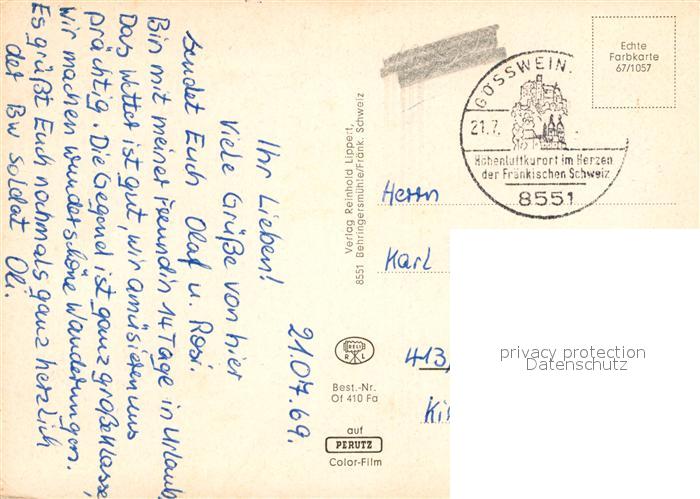 21.07.69.
Ihr Lieben!
Viele Grüße von hier
sendet Euch Olaf u. Rosi.
Bin mit meiner Freundin 14 Tage in Urlaub,
Das Wetter ist gut, wir amüsieren uns
prächtig. Die Gegend ist ganz große Klasse,
wir machen wunderschöne Wanderungen.
Es grüßt Euch nochmals ganz herzlich
der Bw Soldat Oli.
Verlag Reinhold Lippert,
8551 Behringersmühle/Fränk. Schweiz
RELI
R L
Best.-Nr.
Of 410 Fa
auf
PERUTZ
Color-Film
Echte
Farbkarte
67/1057
GÖSSWEIN.
21.7.
Höhenluftkurort im Herzen
der Fränkischen Schweiz
8551
Herrn
Karl
413
privacy protection
Datenschutz